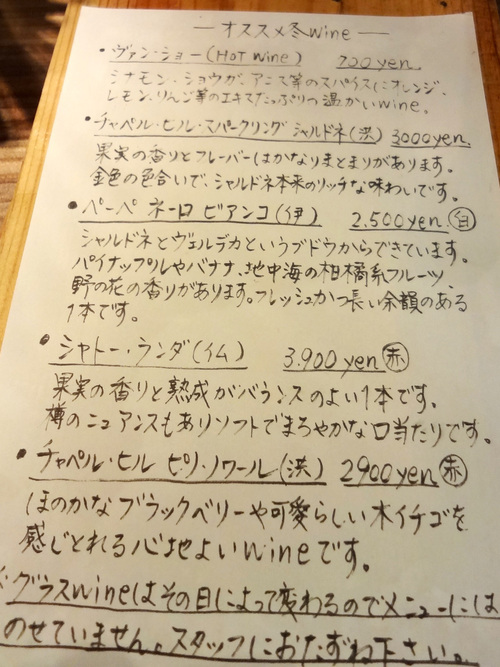 — オススメ冬wine —
・ヴァン・ショー(HOT wine) 700 yen.
シナモン、ショウガ、アニス等のスパイスにオレンジ、
レモン、りんご等のエキスたっぷりの温かいwine。
・チャペル・ヒル・スパークリング シャルドネ(洪) 3000yen.
果実の香りとフレーバーはかなりまとまりがあります。
金色の色合いで、シャルドネ本来のリッチな味わいです。
・ペーペ ネーロ ビアンコ(伊) 2.500yen. 白
シャルドネとヴェルデカというブドウからできています。
パイナップルやバナナ、地中海の柑橘系フルーツ、
野の花の香りがあります。フレッシュかつ長い余韻のある
1本です。
・シャトー・ランダ(仏) 3.900yen 赤
果実の香りと熟成がバランスのよい1本です。
樽のニュアンスもありソフトでまろやかな口当たりです。
・チャペル・ヒル ピノ・ノワール(洪) 2900yen. 赤
ほのかなブラックベリーや可愛らしい木イチゴを
感じとれる心地よいwineです。
グラスwineはその日によって変わるのでメニューには
のせていません。スタッフにおたずね下さい。